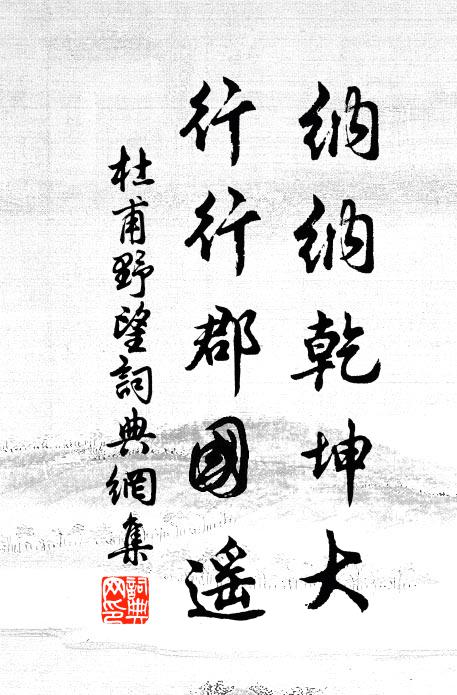 納納乾坤大
行行郡國遥
杜甫野望詞典網集
詞典
网印